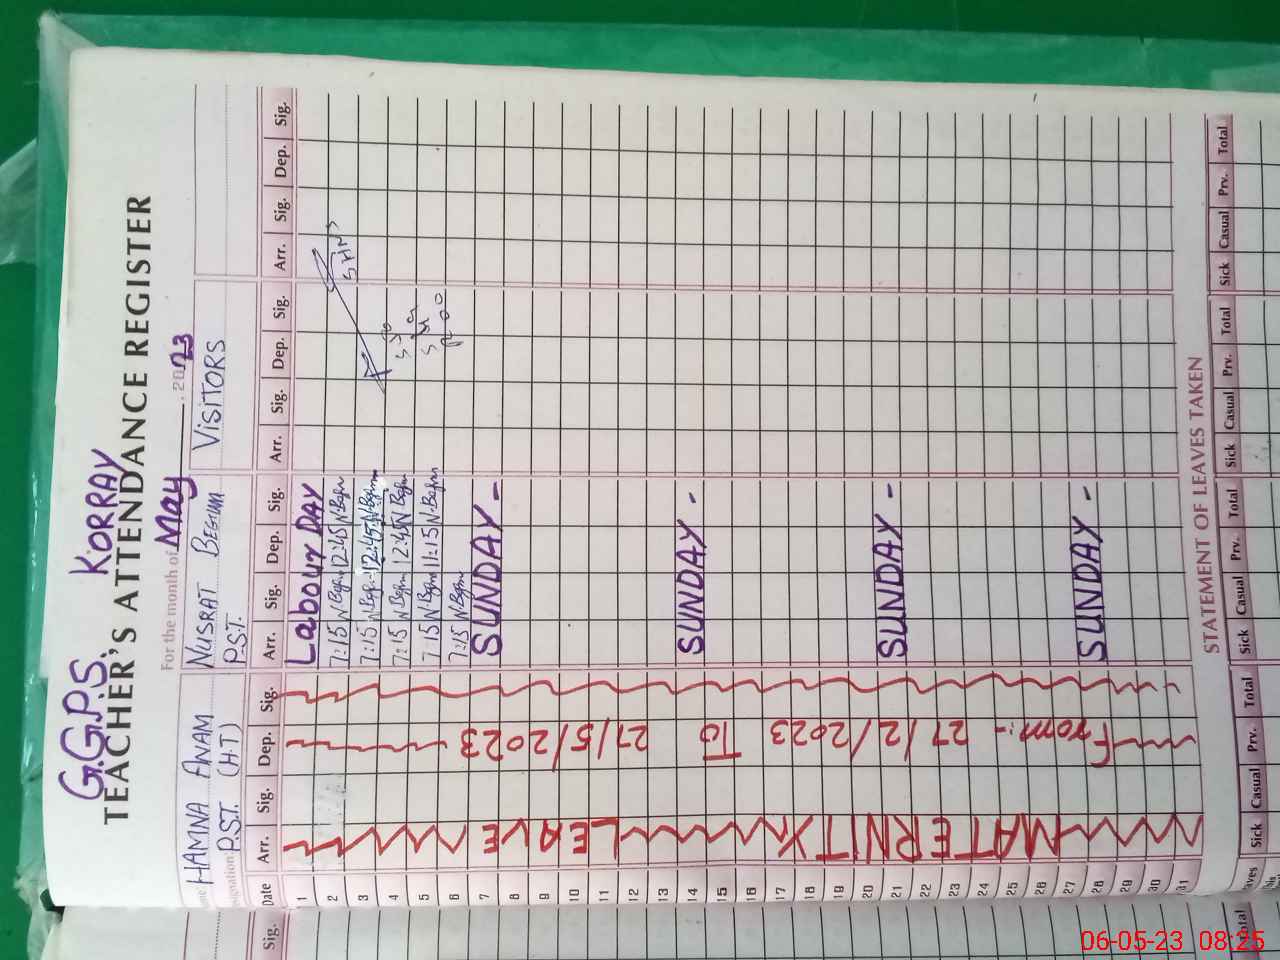 G.G.P.S. KORRAY
TEACHER'S ATTENDANCE REGISTER
For the month of May 2023
HAMNA ANAM NUSRAT BEGUM VISITORS
P.S.T. (H.T) P.S.T.
Date Arr. Sig. Dep. Sig. Arr. Sig. Dep. Sig. Arr. Sig. Dep. Sig. Arr. Sig. Dep. Sig.
1 Labour DAY
2 7:15 N.Begum 12:45 N.Begum
3 7:15 N.Begum 12:45 N.Begum
4 7:15 N.Begum 12:45 N.Begum
5 7:15 N.Begum 11:15 N.Begum
6 7:15 N.Begum
7 SUNDAY -
8
9
10
11
12
13
14 SUNDAY -
15
16
17
18
19
20
21 SUNDAY -
22
23
24
25
26
27
28 SUNDAY -
29
30
31
MATERNITY LEAVE
From:- 27/2/2023 To 27/5/2023
STATEMENT OF LEAVES TAKEN
Sick Casual Prv. Total Sick Casual Prv. Total Sick Casual Prv. Total Sick Casual Prv. Total
Sig.
Total
06-05-23 08:25